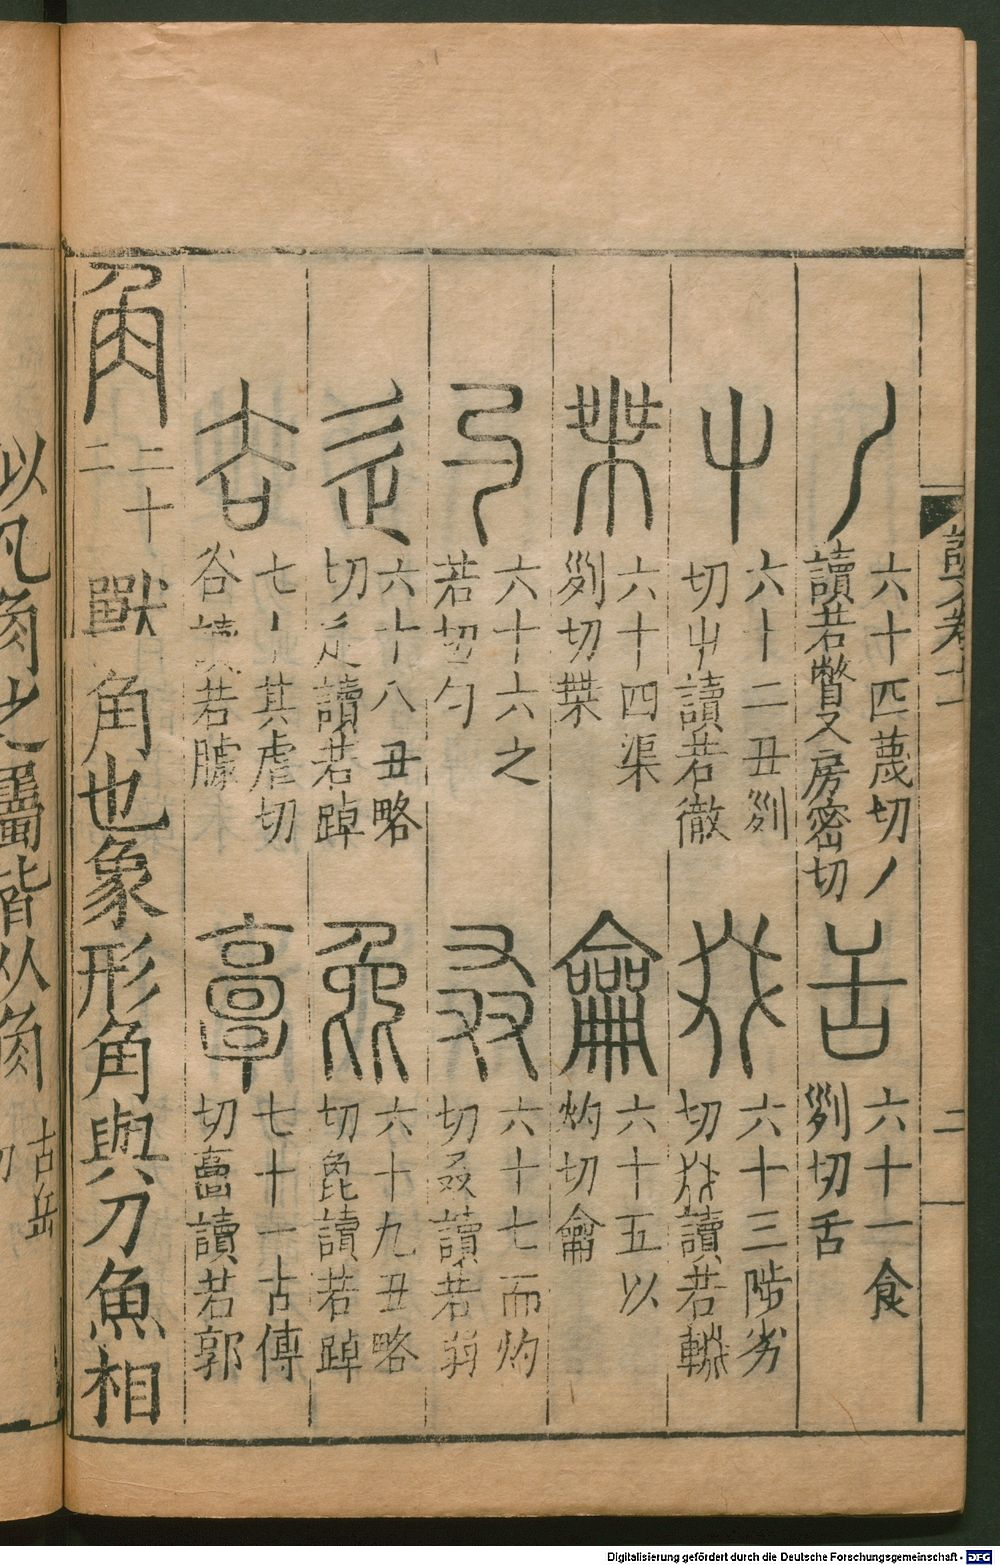 丿 六十匹蔑切丿
讀若瞥又房密切
舌 六十一食
列切舌
屮 六十二丑列
切屮讀若徹
癶 六十三陟劣
切讀若輟
桀 六十四渠
列切桀
龠 六十五以
灼切龠
勺 六十六之
若切勺
叒 六十七而灼
切叒讀若弱
辵 六十八丑略
切辵讀若踔
㲋 六十九丑略
切㲋讀若踔
谷 七十其虐切
谷讀若臄
𩫏 七十一古傳
切𩫏讀若郭
角 二十
二
獸角也象形角與刀魚相
說文卷十一
二
以凡角之屬皆从角 古岳
切
Digitalisierung gefördert durch die Deutsche Forschungsgemeinschaft - DFG